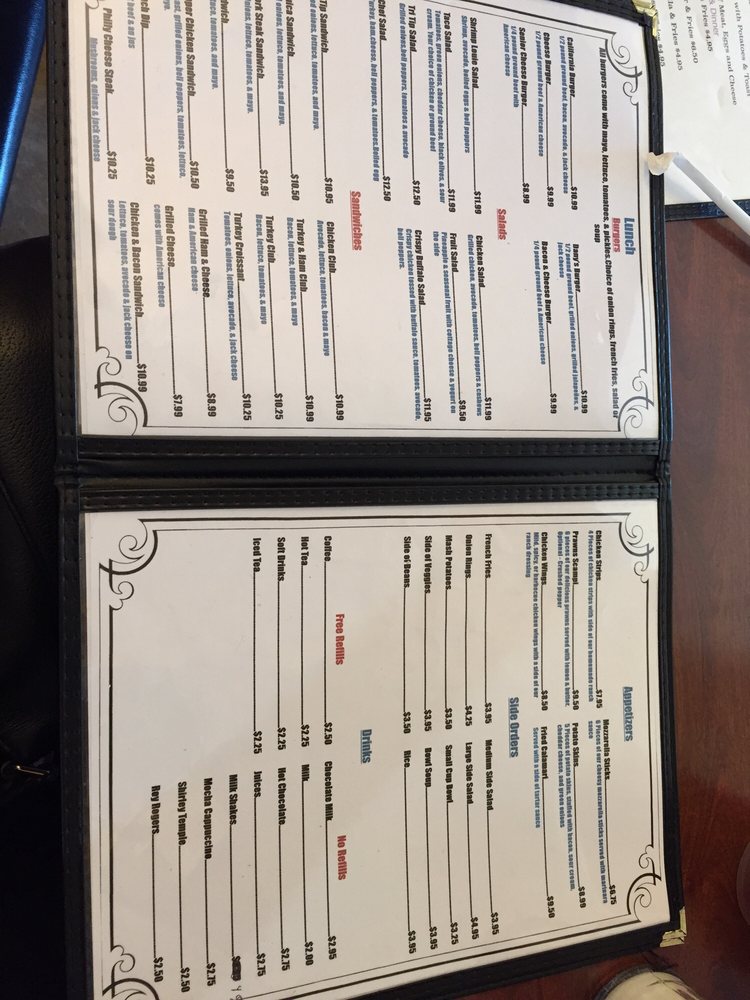 with Potatoes & Toast
Meat, Eggs and Cheese
Fries $4.95
& Fries $6.50
la & Fries $4.95
Lunch
Burgers
All burgers come with mayo, lettuce, tomatoes, & pickles.Choice of onion rings, french fries, salad or
soup
California Burger $10.99
1/2 pound ground beef, bacon, avocado, & jack cheese
Cheese Burger $9.99
1/2 pound ground beef & American cheese
Senior Cheese Burger $8.99
1/4 pound ground beef with
American cheese
Rony's Burger $10.99
1/2 pound ground beef, grilled onions, grilled jalapeños, &
jack cheese
Bacon & Cheese Burger $9.99
1/4 pound ground beef & American cheese
Salads
Shrimp Louie Salad $11.99
Shrimp, avocado, boiled eggs & bell peppers
Taco Salad $11.99
Tomatoes, green onions, cheddar cheese, black olives, & sour
cream. Your choice of chicken or ground beef
Tri Tip Salad $12.50
Grilled onions,bell peppers, tomatoes & avocado
Chef Salad $12.50
Turkey, ham,cheese, bell peppers, & tomatoes.Boiled egg
Chicken Salad $11.99
Grilled chicken, avocado, tomatoes, bell peppers & cashews
Fruit Salad $9.50
Pineapple & seasonal fruit with cottage cheese & yogurt on
the side
Crispy Buffalo Salad $11.95
Crispy chicken tossed with buffalo sauce, tomatoes, avocado,
bell peppers.
Sandwiches
Tip Sandwich $10.95
onions, lettuce, tomatoes, and mayo.
Sandwich $10.50
onions, lettuce, tomatoes, and mayo.
Steak Sandwich $13.95
onions, lettuce, tomatoes, & mayo.
$9.50
tomatoes, and mayo.
Chicken Sandwich $10.50
grilled onions, bell peppers, tomatoes, lettuce,
Dip $10.25
beef & au jus
Philly Cheese Steak $10.25
Mushrooms, onions & jack cheese
Chicken Club $10.99
Avocado, lettuce, tomatoes, bacon & mayo
Turkey & Ham Club $10.99
Bacon, lettuce, tomatoes, & mayo
Turkey Club $10.25
Bacon, lettuce, tomatoes, & mayo
Turkey Croissant $10.25
Tomatoes, onions, lettuce, avocado, & jack cheese
Grilled Ham & Cheese $8.99
Ham & American cheese
Grilled Cheese $7.99
comes with American cheese
Chicken & Bacon Sandwich $10.99
Lettuce, tomatoes, avocado & jack cheese on
sour dough
Appetizers
Chicken Strips $7.95
4 Pieces of chicken strips with side of our homemade ranch
Prawns Scampi $9.50
6 pieces of our delicious prawns served with lemon & butter.
Optional - Crushed pepper
Chicken Wings $8.50
Mild, spicy, or barbecue chicken wings with a side of our
ranch dressing
Mozzarella Sticks $6.75
6 Pieces of our cheesy mozzarella sticks served with marinara
sauce
Potato Skins $8.99
5 Pieces of potato skins, stuffed with bacon, sour cream,
cheddar cheese, and green onions
Fried Calamari $9.50
Served with a side of tartar sauce
Side Orders
French Fries $3.95
Onion Rings $4.25
Mash Potatoes $3.50
Side of Veggies $3.95
Side of Beans $3.50
Medium Side Salad $3.95
Large Side Salad $4.95
Small Cup Bowl $3.25
Bowl Soup $3.95
Rice $3.95
Drinks
Free Refills
Coffee $2.50
Hot Tea $2.25
Soft Drinks $2.25
Iced Tea $2.25
No Refills
Chocolate Milk $2.95
Milk $2.00
Hot Chocolate $2.75
Juices $2.75
Milk Shakes
Mocha Cappuccino $2.75
Shirley Temple $2.50
Roy Rogers $2.50